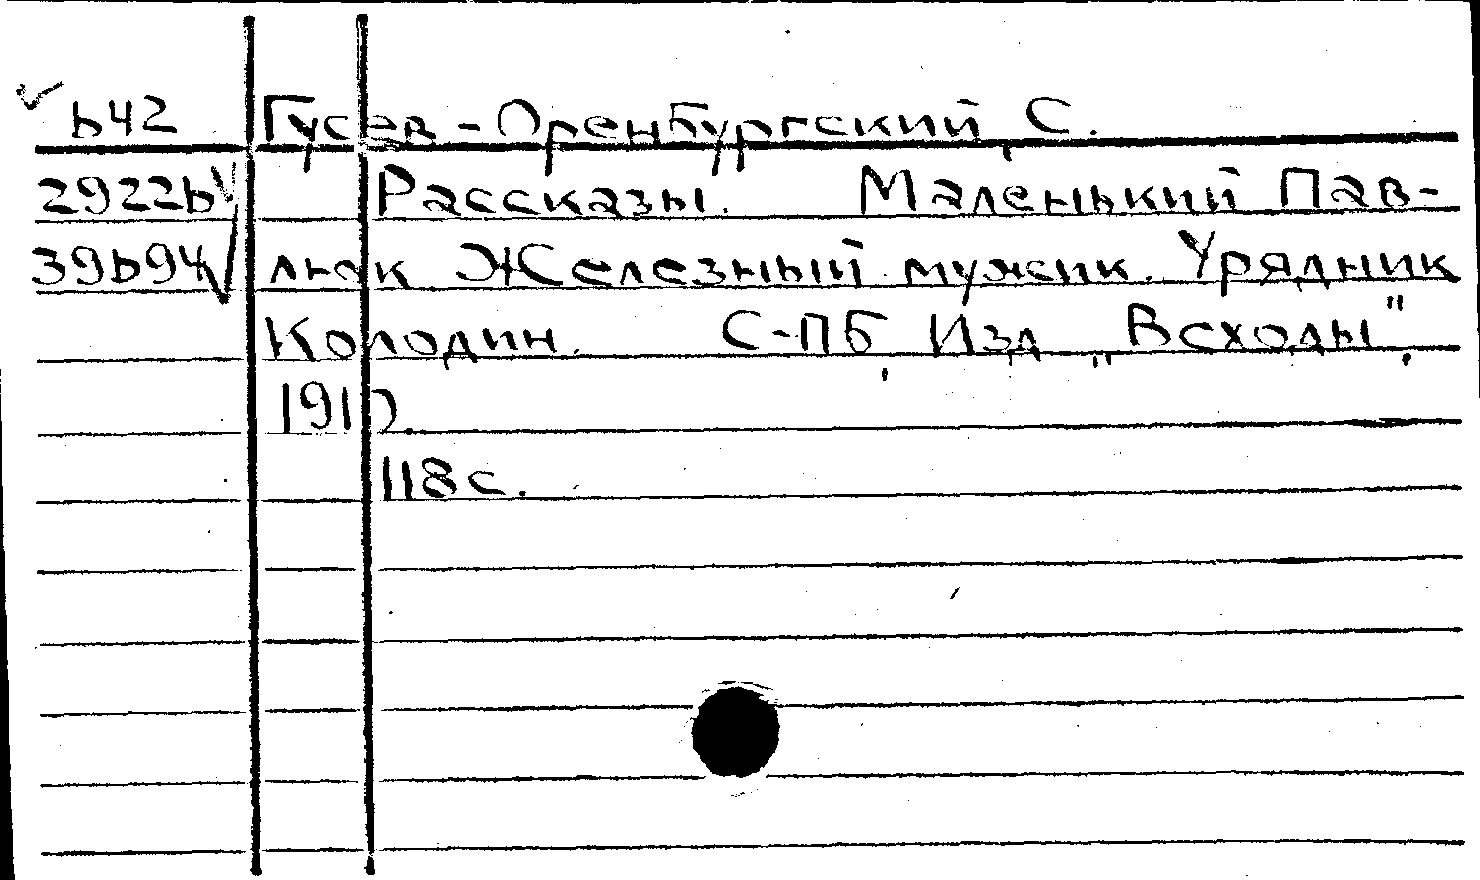 b42 Гусев-Оренбургский, С.
2922b Рассказы. Маленький Пав-
39b94 люк Железный мужик. Урядник
Колодин. С-ПБ, Изд. „Всходы",
1910.
118 с.